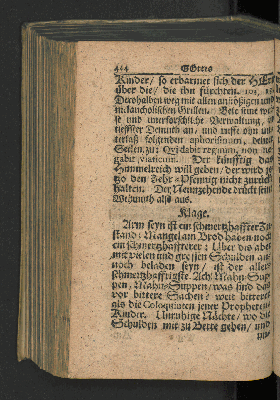 424 GOttes
Kinder/ so erbarmet sich der HErr
über die/ die ihn fürchten. 103, 13
Derohalben weg mit allen anzüßigen und
melancholischen Grillen. Bete seine weis-
ist und unerforschliche Verwaltung, in
tieffster Demuth an, und ruffe ohn un-
terlaß folgenden aphorismum, deiner
Seelen zu: Qvi dabit regnum, non ne-
gabit viaticum. Der künfftig das
Himmelreich will geben/ der wird je-
tzo den Zehr-Pfennig nicht zurücke
halten. Der Neunzehende drückt sein
Wehmuth also aus.
Klage.
Arm seyn ist ein schmertzhaffter Zu-
stand: Mangel am Brod haben noch
ein schmertzhaffterer: Über die abet
mit vielen und grossen Schulden an-
noch beladen seyn/ ist der aller-
schmertzhafftigste. Ach! Mahn-Sup-
pen, Mahn-Suppen/ was sind das
vor bittere Sachen? weit bitterer
als die Coloquinten jener Propheten-
Kinder. Unruhige Nächte/ wo die
Schulden mit zu Bette gehen/ und
mit